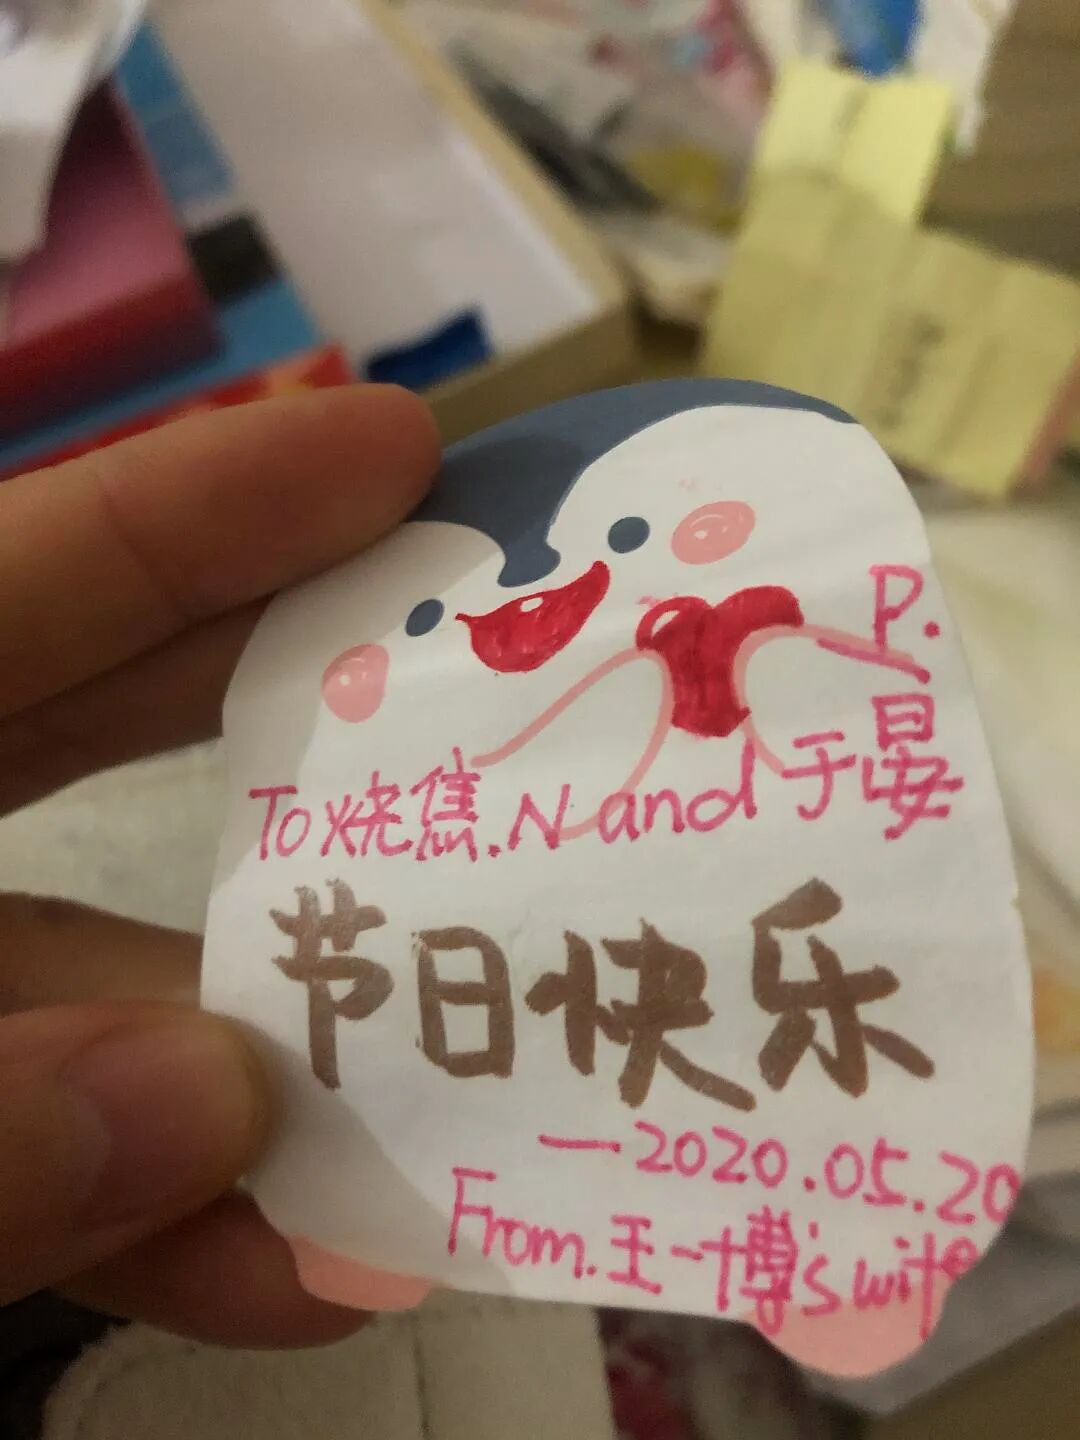 P.
To 烧焦.N and 于晏
节日快乐
—2020.05.20
From.王一博's wife